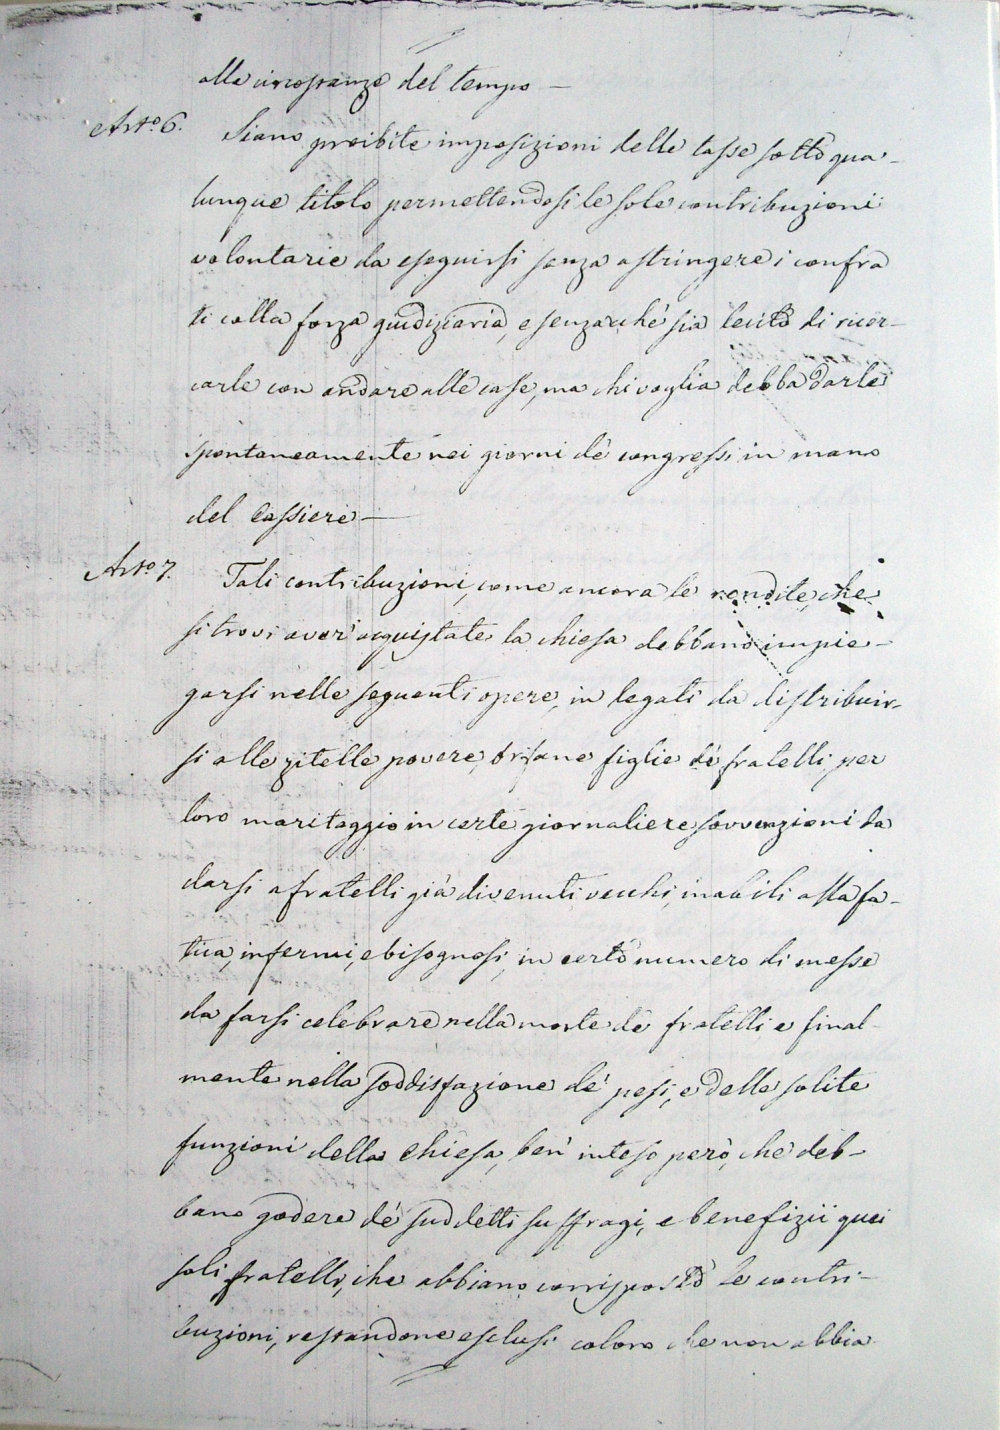 alle circostanze del tempo —
Arto. 6. Siano proibite imposizioni delle tasse sotto qua-
lunque titolo permettendosi le sole contribuzioni
volontarie da eseguirsi senza astringere i confra
ti colla forza giudiziaria, e senzacché sia lecito di ricer-
carle con andare alle case, ma chi voglia debba darle
spontaneamente nei giorni de' congressi in mano
del Cassiere —
Arto. 7. Tali contribuzioni, come ancora le rendite, che
si trovi aver acquistate la chiesa debbano impie-
garsi nelle seguenti opere, in legati da distribuir-
si alle zitelle povere, orfane figlie de' fratelli, per
loro maritaggio in certe giornaliere sovvenzioni da
darsi a fratelli già divenuti vecchi, inabili alla fa-
tica, infermi, e bisognosi, in certo numero di messe
da farsi celebrare nella morte de' fratelli e final-
mente nella soddisfazione de' pesi, e delle solite
funzioni della Chiesa, ben' inteso però, che deb-
bano godere de' suddetti suffragi, e benefizii quei
soli fratelli, che abbiano corrisposto le contri-
buzioni, restandone esclusi coloro che non abbia